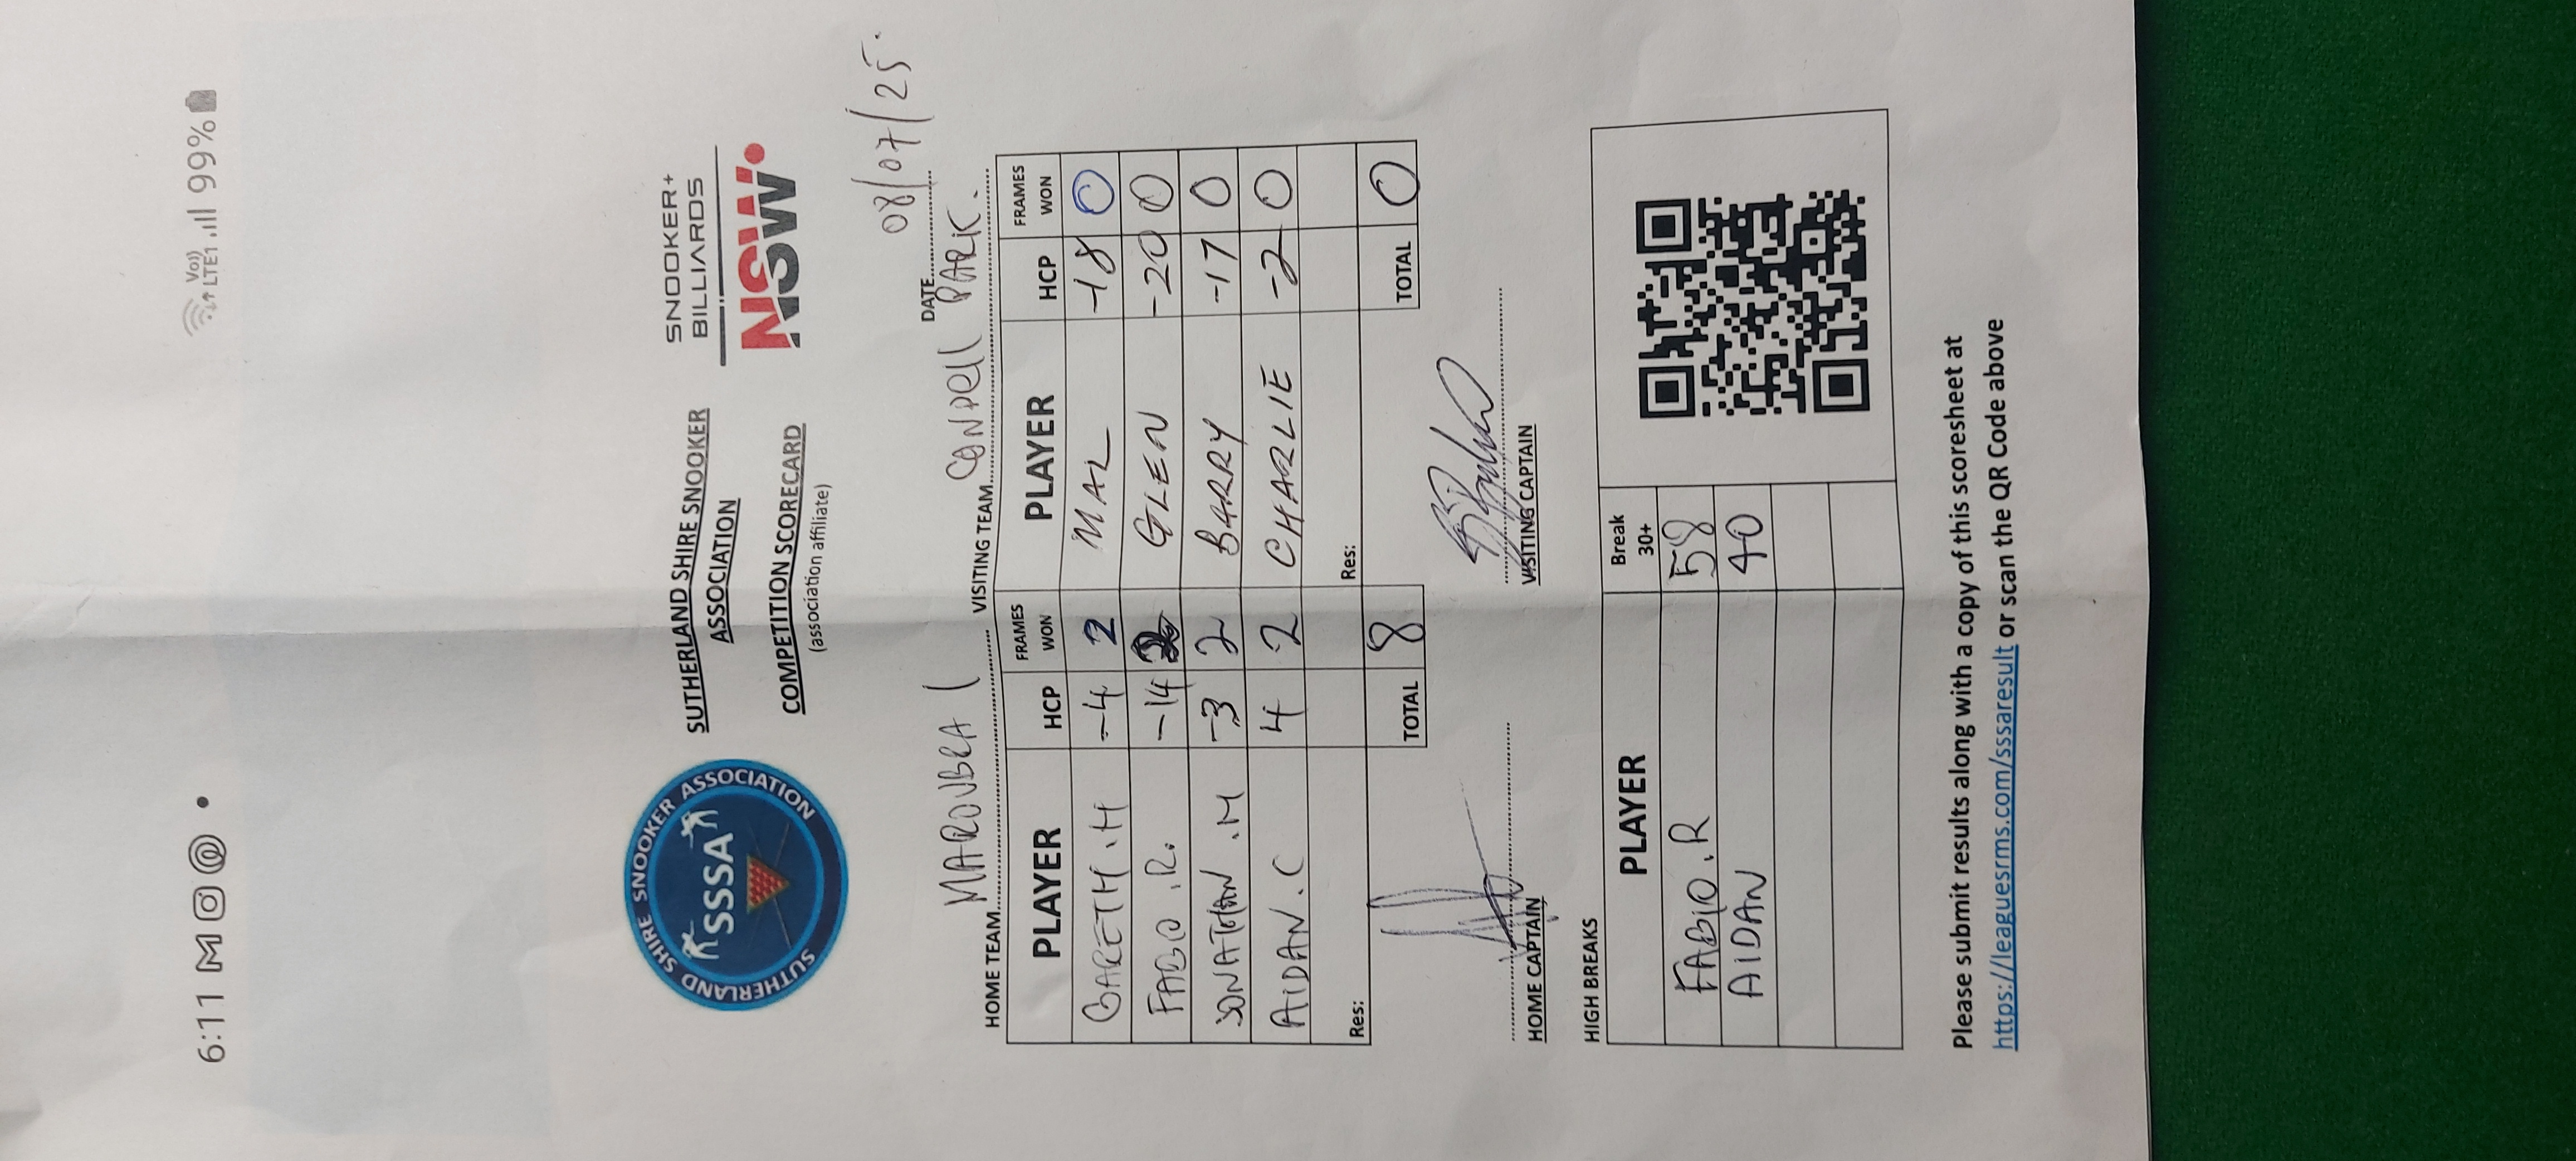 6:11 M •
Vo)) LTE1 99%
SUTHERLAND SHIRE SNOOKER ASSOCIATION
SSSA
SUTHERLAND SHIRE SNOOKER
ASSOCIATION
COMPETITION SCORECARD
(association affiliate)
SNOOKER+
BILLIARDS
NSW
DATE 08/07/25.
HOME TEAM MAROUBRA 1 VISITING TEAM CONDELL PARK.
PLAYER HCP FRAMES WON PLAYER HCP FRAMES WON
GARETH.H -4 2 MAL -18 0
FABIO.R. -14 2 GLEN -20 0
JONATHAN.M -3 2 BARRY -17 0
AIDAN.C 4 2 CHARLIE -2 0
Res: Res:
TOTAL 8 TOTAL 0
HOME CAPTAIN VISITING CAPTAIN
HIGH BREAKS
PLAYER Break 30+
FABIO.R 58
AIDAN 40
Please submit results along with a copy of this scoresheet at
https://leaguesrms.com/sssaresult or scan the QR Code above